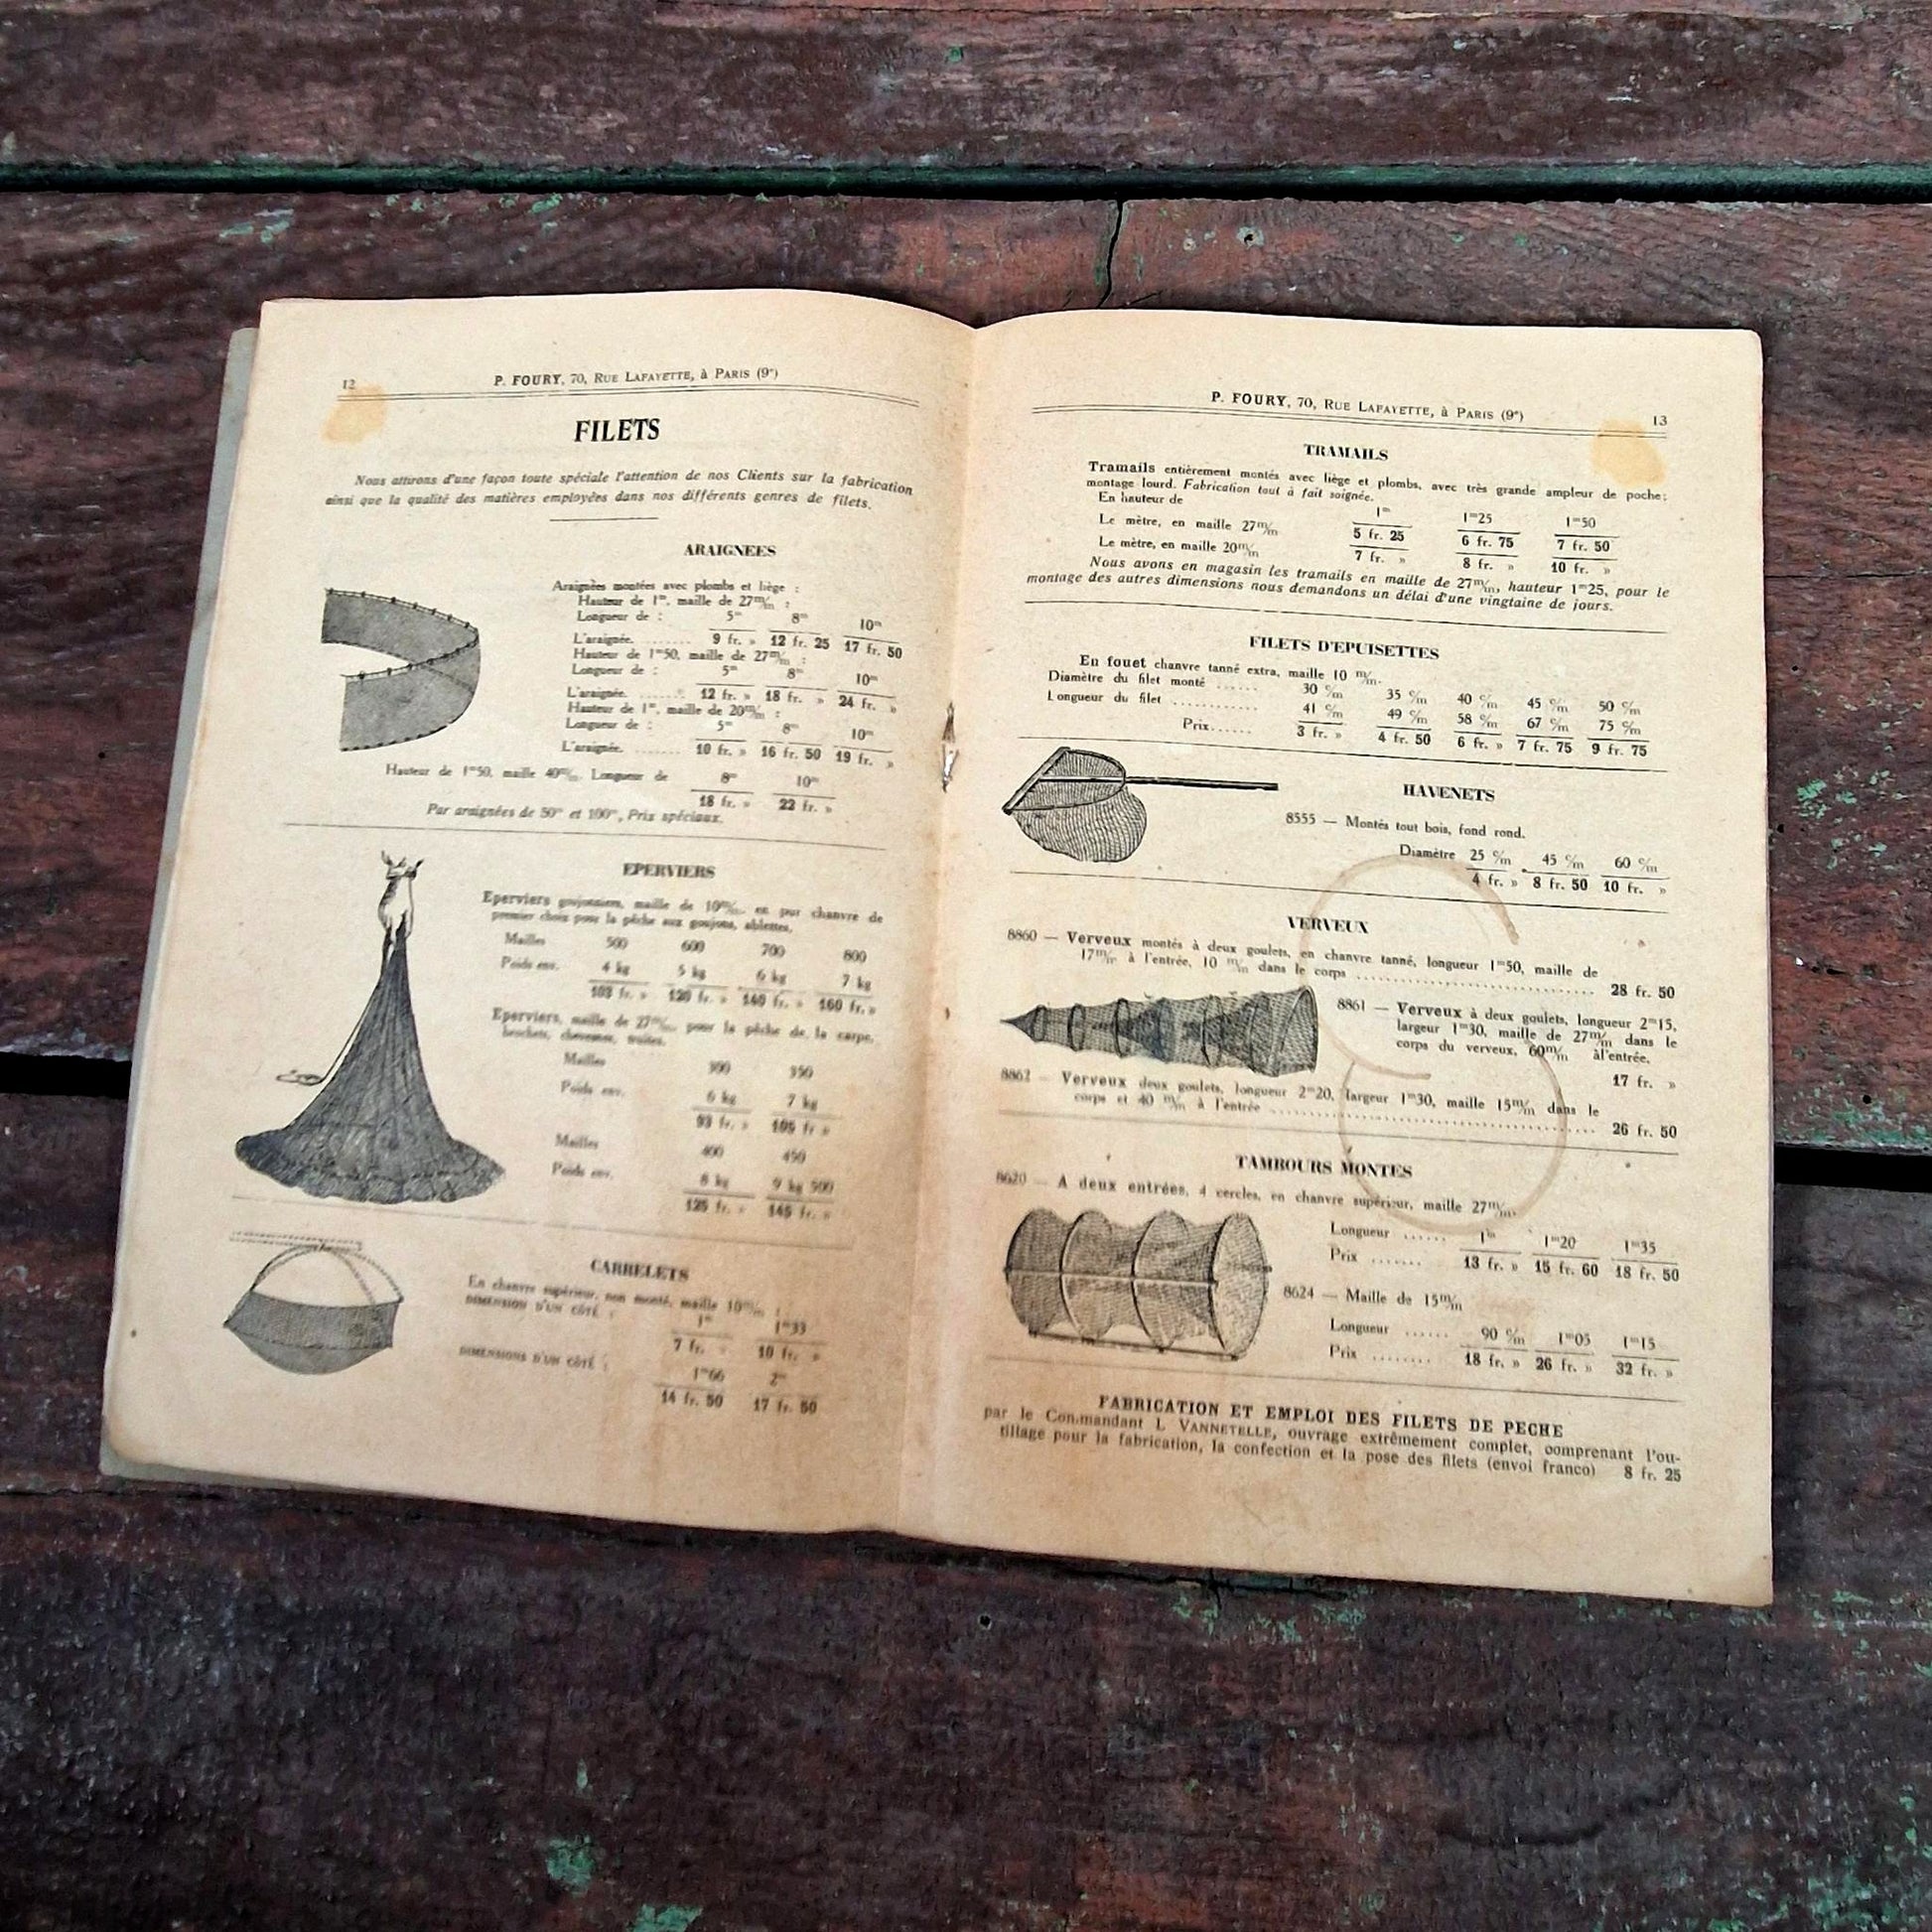 12
P. FOURY, 70, RUE LAFAYETTE, à PARIS (9e)
FILETS
Nous attirons d'une façon toute spéciale l'attention de nos Clients sur la fabrication
ainsi que la qualité des matières employées dans nos différents genres de filets.
ARAIGNEES
Araignées montées avec plombs et liège :
Hauteur de 1m, maille de 27m/m :
Longueur de : 5m 8m 10m
L'araignée. ........ 9 fr. » 12 fr. 25 17 fr. 50
Hauteur de 1m50, maille de 27m/m :
Longueur de : 5m 8m 10m
L'araignée. ........ 12 fr. » 18 fr. » 24 fr. »
Hauteur de 1m, maille de 20m/m :
Longueur de : 5m 8m 10m
L'araignée. ........ 10 fr. » 16 fr. 50 19 fr. »
Hauteur de 1m50, maille 40m/m. Longueur de 8m 10m
18 fr. » 22 fr. »
Par araignées de 50m et 100m, Prix spéciaux.
EPERVIERS
Eperviers goujonniers, maille de 10m/m. en pur chanvre de
premier choix pour la pêche aux goujons, ablettes.
Mailles 500 600 700 800
Poids env. 4 kg 5 kg 6 kg 7 kg
103 fr. » 120 fr. » 140 fr. » 160 fr. »
Eperviers, maille de 27m/m. pour la pêche de la carpe,
brochets, chevesnes, truites.
Mailles 300 350
Poids env. 6 kg 7 kg
93 fr. » 105 fr »
Mailles 400 450
Poids env. 8 kg 9 kg 500
125 fr. » 145 fr. »
CARRELETS
En chanvre supérieur, non monté, maille 10m/m :
DIMENSION D'UN CÔTÉ : 1m 1m33
7 fr. » 10 fr. »
DIMENSIONS D'UN CÔTÉ : 1m66 2m
14 fr. 50 17 fr. 50
P. FOURY, 70, RUE LAFAYETTE, à PARIS (9e)
13
TRAMAILS
Tramails entièrement montés avec liège et plombs, avec très grande ampleur de poche;
montage lourd. Fabrication tout à fait soignée.
En hauteur de 1m 1m25 1m50
Le mètre, en maille 27m/m 5 fr. 25 6 fr. 75 7 fr. 50
Le mètre, en maille 20m/m 7 fr. » 8 fr. » 10 fr. »
Nous avons en magasin les tramails en maille de 27m/m, hauteur 1m25, pour le
montage des autres dimensions nous demandons un délai d'une vingtaine de jours.
FILETS D'EPUISETTES
En fouet chanvre tanné extra, maille 10 m/m.
Diamètre du filet monté ...... 30 c/m 35 c/m 40 c/m 45 c/m 50 c/m
Longueur du filet ............ 41 c/m 49 c/m 58 c/m 67 c/m 75 c/m
Prix...... 3 fr. » 4 fr. 50 6 fr. » 7 fr. 75 9 fr. 75
HAVENETS
8555 — Montés tout bois, fond rond.
Diamètre 25 c/m 45 c/m 60 c/m
4 fr. » 8 fr. 50 10 fr. »
VERVEUX
8860 — Verveux montés à deux goulets, en chanvre tanné, longueur 1m50, maille de
17m/m à l'entrée, 10 m/m dans le corps .................... 28 fr. 50
8861 — Verveux à deux goulets, longueur 2m15,
largeur 1m30, maille de 27m/m dans le
corps du verveux, 60m/m àl'entrée.
17 fr. »
8862 — Verveux deux goulets, longueur 2m20, largeur 1m30, maille 15m/m dans le
corps et 40 m/m à l'entrée .................... 26 fr. 50
TAMBOURS MONTES
8620 — A deux entrées, 4 cercles, en chanvre supérieur, maille 27m/m.
Longueur ...... 1m 1m20 1m35
Prix ....... 13 fr. » 15 fr. 60 18 fr. 50
8624 — Maille de 15m/m
Longueur ...... 90 c/m 1m05 1m15
Prix ........ 18 fr. » 26 fr. » 32 fr. »
FABRICATION ET EMPLOI DES FILETS DE PECHE
par le Commandant L VANNETELLE, ouvrage extrêmement complet, comprenant l'ou-
tillage pour la fabrication, la confection et la pose des filets (envoi franco) 8 fr. 25